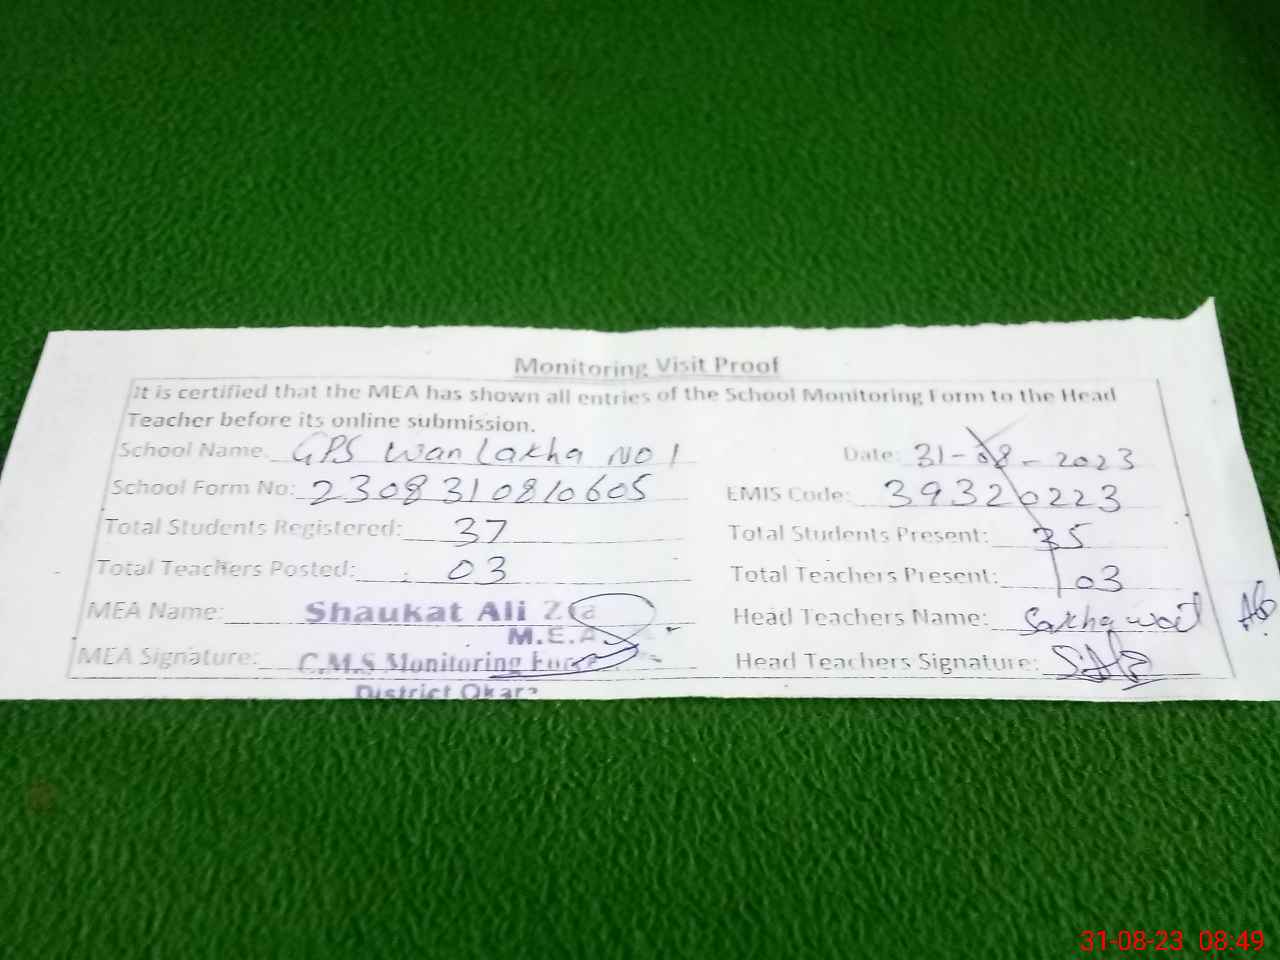 Monitoring Visit Proof
It is certified that the MEA has shown all entries of the School Monitoring Form to the Head
Teacher before its online submission.
School Name. GPS Wan Lakha NO 1 Date: 31-08-2023
School Form No: 2308310810605 EMIS Code: 39320223
Total Students Registered: 37 Total Students Present: 35
Total Teachers Posted: 03 Total Teachers Present: 03
MEA Name: Shaukat Ali Zia Head Teachers Name:
M.E.A
MEA Signature: C.M.S Monitoring Force Head Teachers Signature:
District Okara
31-08-23 08:49